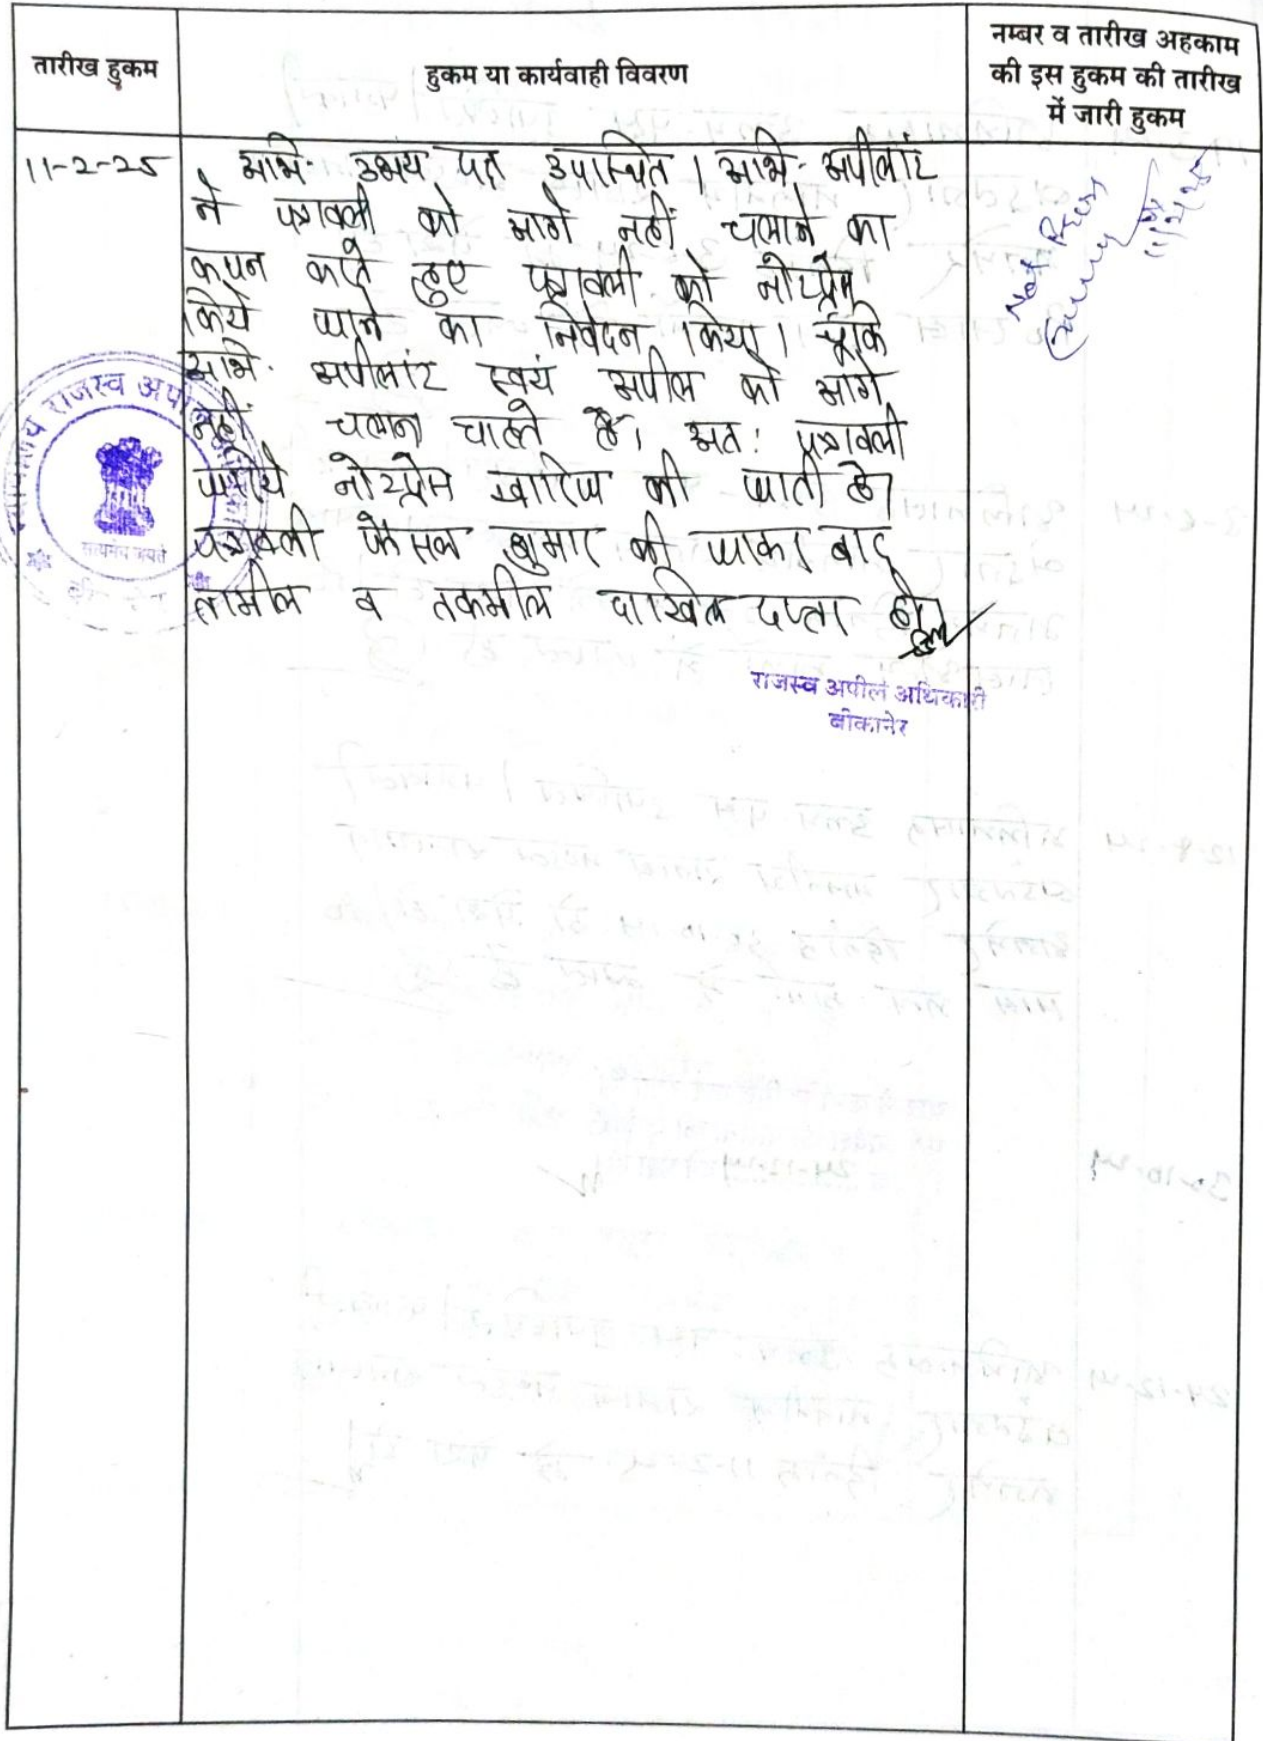 तारीख हुकम
हुकम या कार्यवाही विवरण
नम्बर व तारीख अहकाम
की इस हुकम की तारीख
में जारी हुकम
11-2-25
अभि. उभय पक्ष उपस्थित । अभि. अपीलांट
ने पत्रावली को आगे नहीं चलाने का
कथन करते हुए पत्रावली को नोटप्रेस
किये जाने का निवेदन किया । चूंकि
अभि. अपीलांट स्वयं अपील को आगे
नहीं चलाना चाहते है। अतः पत्रावली
जरिये नोटप्रेस खारिज की जाती है।
पत्रावली फैसल शुमार की जाकर बाद
तामील व तकमील दाखिल दफ्तर हो।
राजस्व अपील अधिकारी
बीकानेर
Not Press
11/2/25
राजस्व अपी
सत्यमेव जयते